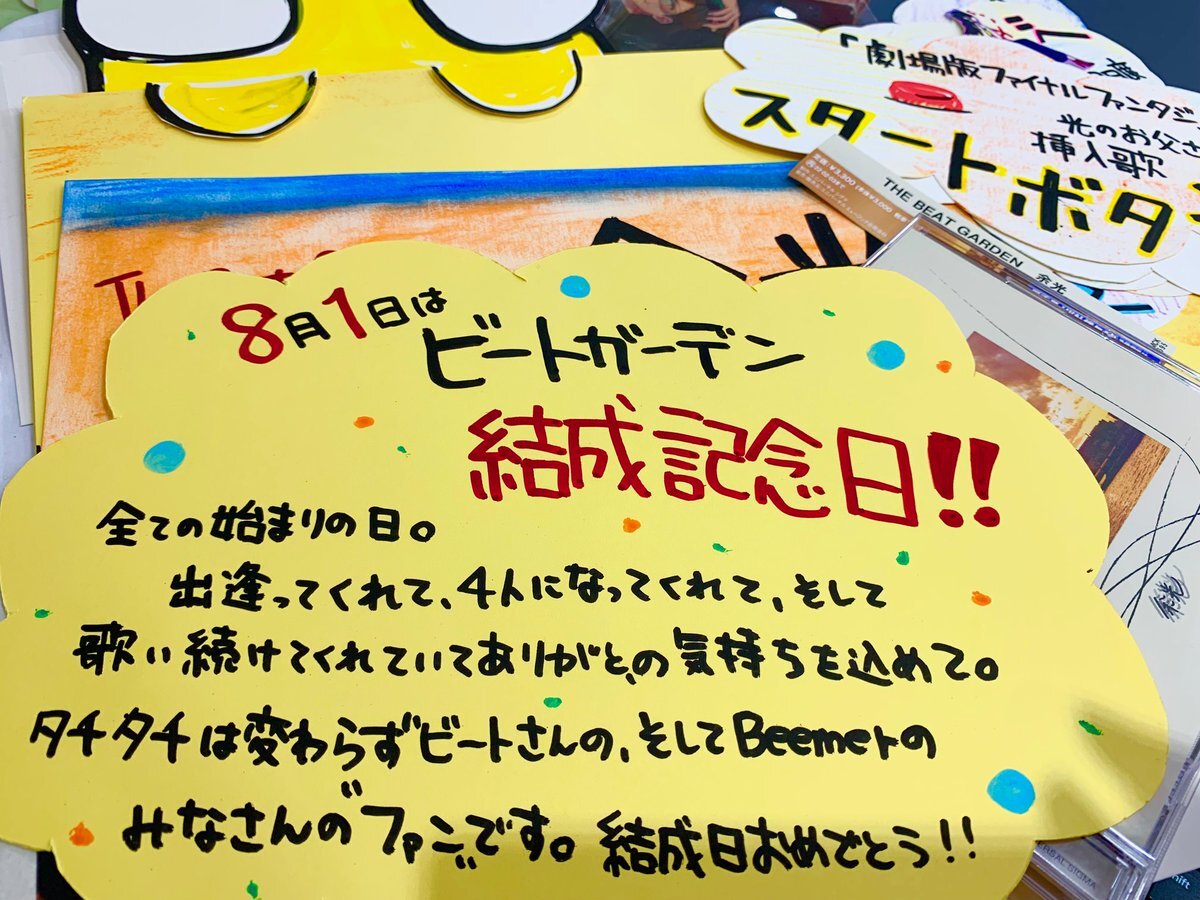 「劇場版ファイナルファンタジ
光のお父さ
挿入歌
スタートボタ
THE BEAT GARDEN 余光
8月1日は
ビートガーデン
結成記念日!!
全ての始まりの日。
出逢ってくれて、4人になってくれて、そして
歌い続けてくれていてありがと、の気持ちを込めて。
タチタチは変わらずビートさんの、そしてBeemerの
みなさんの"ファン"です。結成日おめでとう!!
余光